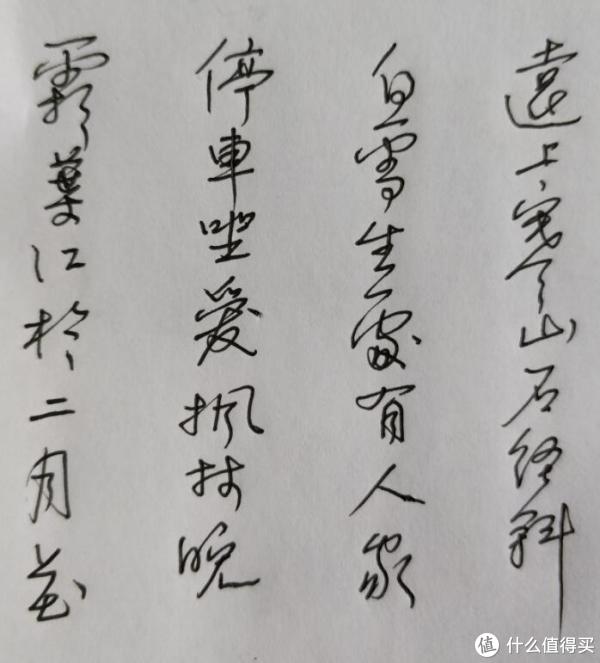 遠上寒山石徑斜
白雲生處有人家
停車坐愛楓林晚
霜葉紅於二月花
值 什么值得买